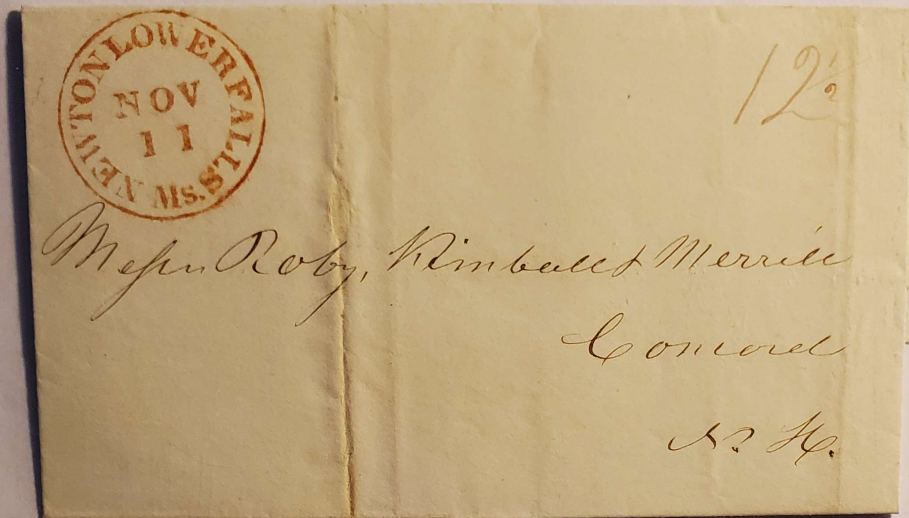 NEWTON LOWER FALLS Ms.
NOV
11
12½
Messrs Roby, Kimball & Merrill
Concord
N. H.